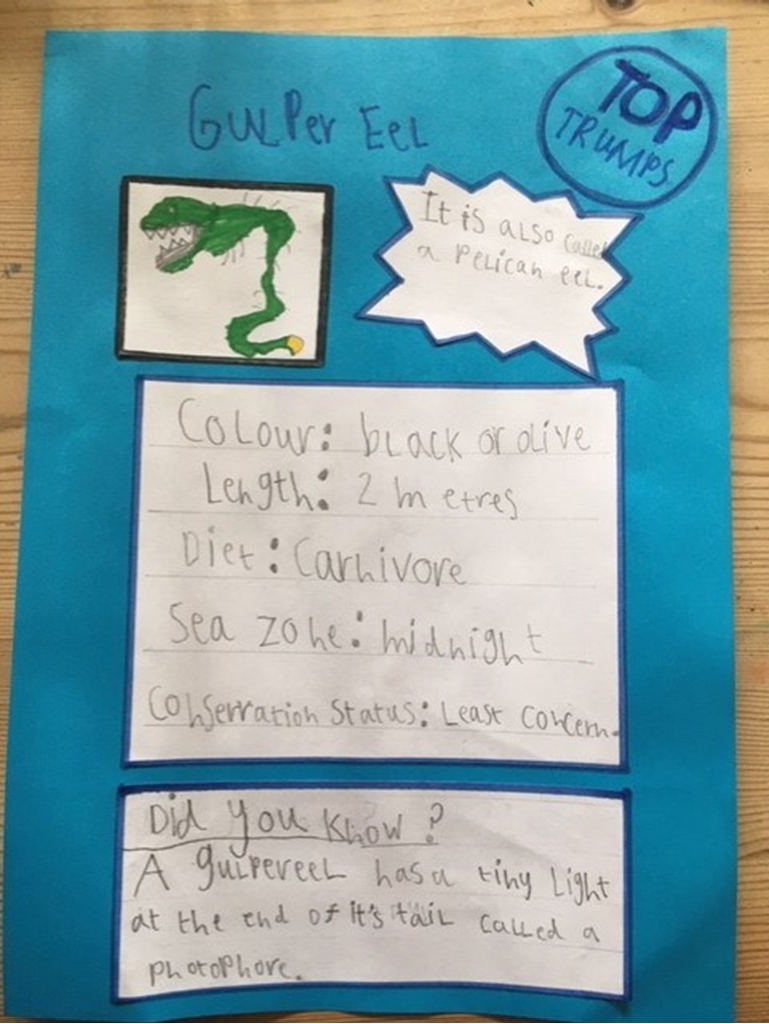 GULPer EeL
TOP
TRUMPS
It is aLSO called
a PeLican eel.
CoLour: bLack or olive
Length: 2 metres
Diet: Carnivore
Sea zone: midnight
Conservation Status: Least concern.
Did you know?
A gulpereel has a tiny Light
at the end of it's tail called a
photophore.